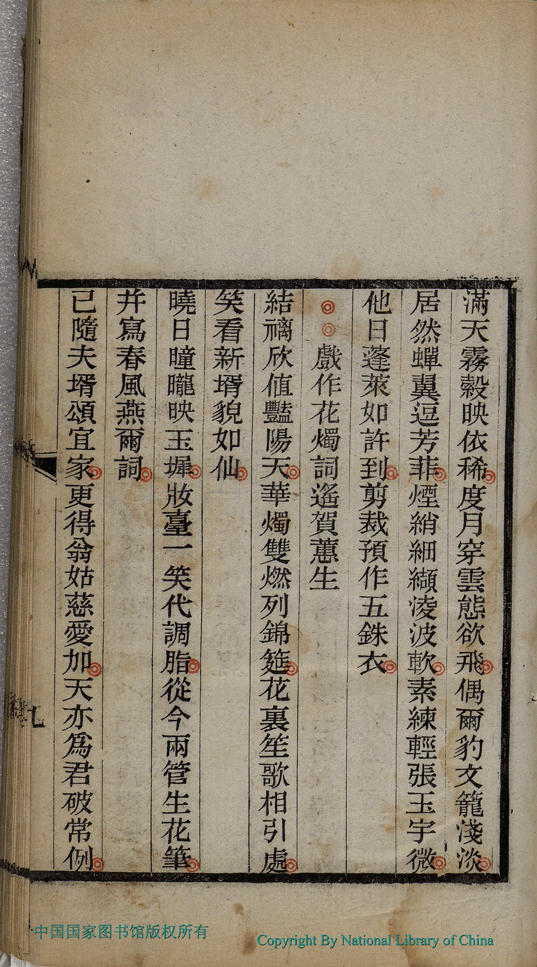 滿天霧縠映依稀度月穿雲態欲飛偶爾豹文籠淺淡
居然蟬翼逗芳菲煙綃細纈淩波軟素練輕張玉宇微
他日蓬萊如許到剪裁預作五銖衣
戲作花燭詞遙賀蕙生
結褵欣值豔陽天華燭雙燃列錦筵花裏笙歌相引處
笑看新壻貌如仙
曉日曈曨映玉墀妝臺一笑代調脂從今兩管生花筆
幷寫春風燕爾詞
已隨夫壻頌宜家更得翁姑慈愛加天亦爲君破常例
七
中国国家图书馆版权所有
Copyright By National Library of China